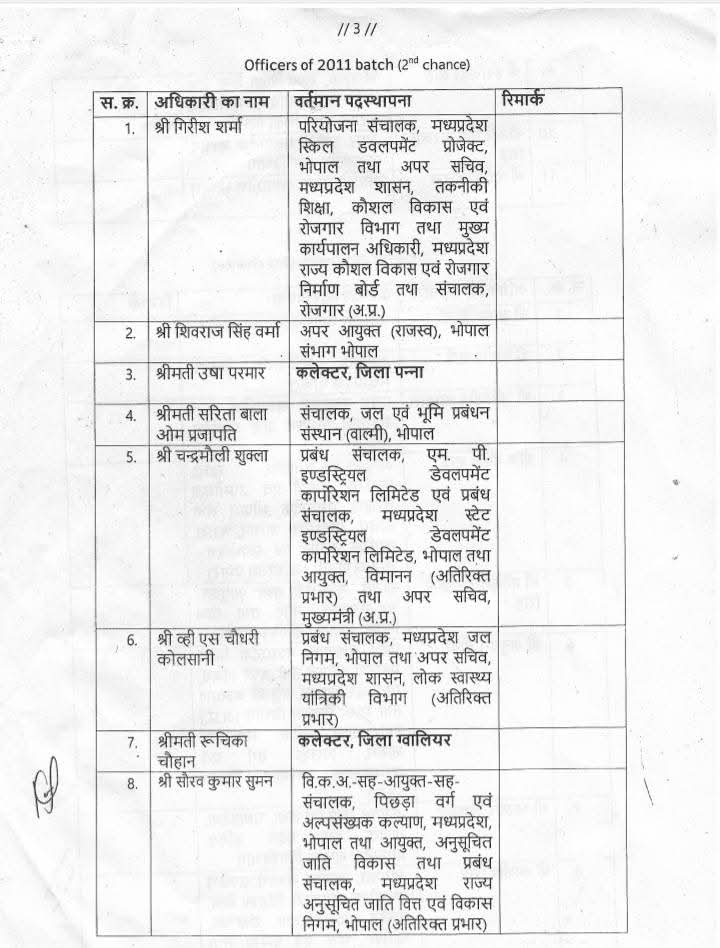 // 3 //
Officers of 2011 batch (2nd chance)
स. क्र. अधिकारी का नाम वर्तमान पदस्थापना रिमार्क
1. श्री गिरीश शर्मा परियोजना संचालक, मध्यप्रदेश
स्किल डवलपमेंट प्रोजेक्ट,
भोपाल तथा अपर सचिव,
मध्यप्रदेश शासन, तकनीकी
शिक्षा, कौशल विकास एवं
रोजगार विभाग तथा मुख्य
कार्यपालन अधिकारी, मध्यप्रदेश
राज्य कौशल विकास एवं रोजगार
निर्माण बोर्ड तथा संचालक,
रोजगार (अ.प्र.)
2. श्री शिवराज सिंह वर्मा अपर आयुक्त (राजस्व), भोपाल
संभाग भोपाल
3. श्रीमती उषा परमार कलेक्टर, जिला पन्ना
4. श्रीमती सरिता बाला संचालक, जल एवं भूमि प्रबंधन
ओम प्रजापति संस्थान (वाल्मी), भोपाल
5. श्री चन्द्रमौली शुक्ला प्रबंध संचालक, एम. पी.
इण्डस्ट्रियल डेवलपमेंट
कार्पोरेशन लिमिटेड एवं प्रबंध
संचालक, मध्यप्रदेश स्टेट
इण्डस्ट्रियल डेवलपमेंट
कार्पोरेशन लिमिटेड, भोपाल तथा
आयुक्त, विमानन (अतिरिक्त
प्रभार) तथा अपर सचिव,
मुख्यमंत्री (अ.प्र.)
6. श्री व्ही एस चौधरी प्रबंध संचालक, मध्यप्रदेश जल
कोलसानी निगम, भोपाल तथा अपर सचिव,
मध्यप्रदेश शासन, लोक स्वास्थ्य
यांत्रिकी विभाग (अतिरिक्त
प्रभार)
7. श्रीमती रूचिका कलेक्टर, जिला ग्वालियर
चौहान
8. श्री सौरव कुमार सुमन वि.क.अ.-सह-आयुक्त-सह-
संचालक, पिछड़ा वर्ग एवं
अल्पसंख्यक कल्याण, मध्यप्रदेश,
भोपाल तथा आयुक्त, अनुसूचित
जाति विकास तथा प्रबंध
संचालक, मध्यप्रदेश राज्य
अनुसूचित जाति वित्त एवं विकास
निगम, भोपाल (अतिरिक्त प्रभार)